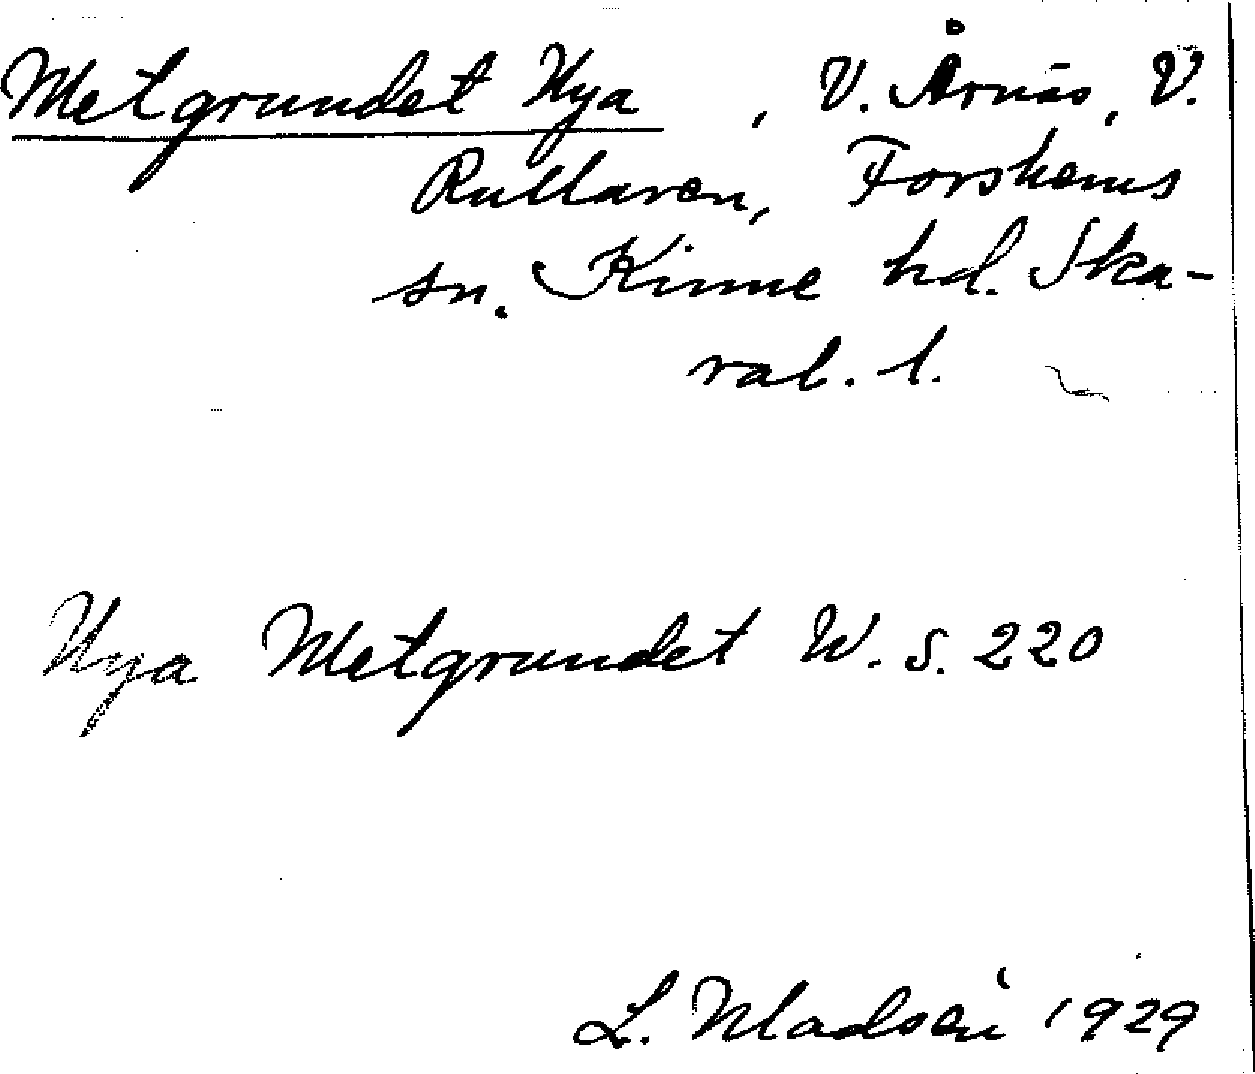 Metgrundet Nya , V. Årnäs, V.
Rullaren, Forshems
sn. Kinne hd. Ska-
rab. l.
Nya Metgrundet W. S. 220
L. Madsén 1929